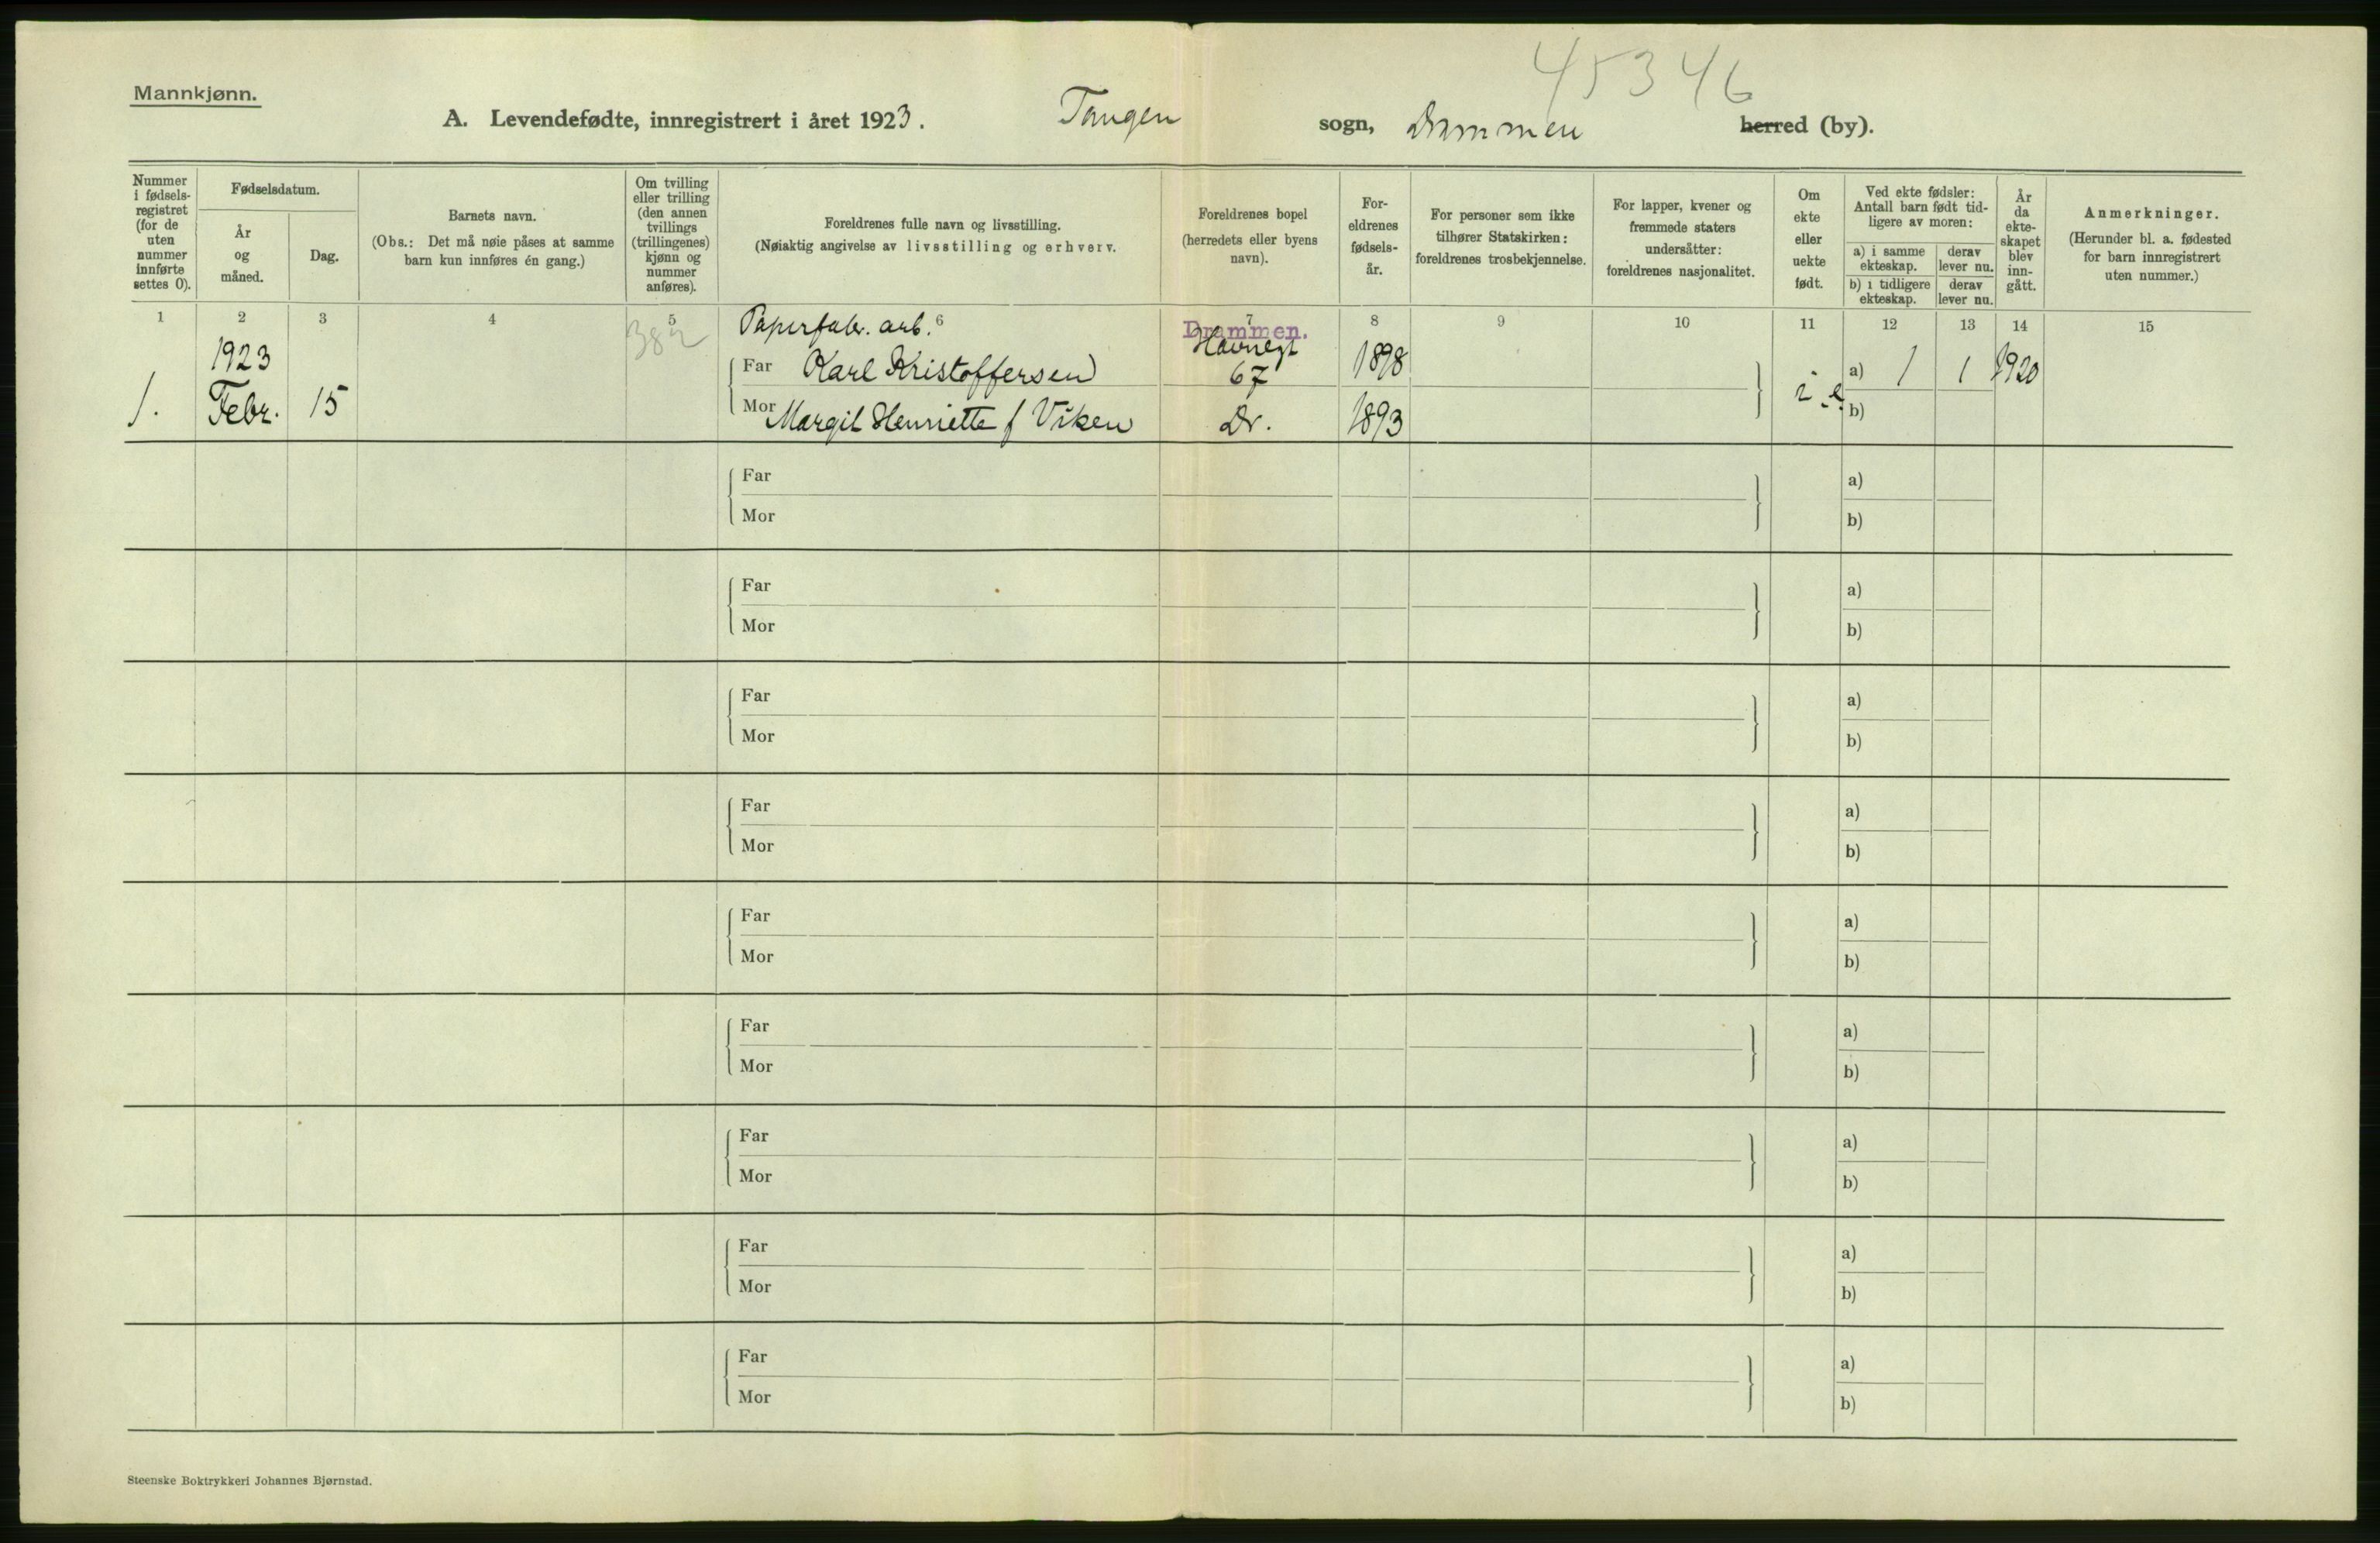 45346
Mannkjønn.
A. Levendefødte, innregistrert i året 1923. Tangen sogn, Drammen herred (by).
Nummer i fødsels- registret (for de uten nummer innførte settes 0).
Fødselsdatum.
År og måned.
Dag.
Barnets navn.
(Obs.: Det må nøie påses at samme barn kun innføres én gang.)
Om tvilling eller trilling (den annen tvillings (trillingenes) kjønn og nummer anføres).
Foreldrenes fulle navn og livsstilling.
(Nøiaktig angivelse av livsstilling og erhverv.
Foreldrenes bopel (herredets eller byens navn).
For- eldrenes fødsels- år.
For personer som ikke tilhører Statskirken: foreldrenes trosbekjennelse.
For lapper, kvener og fremmede staters undersåtter: foreldrenes nasjonalitet.
Om ekte eller uekte født.
Ved ekte fødsler: Antall barn født tid- ligere av moren:
a) i samme ekteskap.
derav lever nu.
b) i tidligere ekteskap.
derav lever nu.
År da ekte- skapet blev inn- gått.
Anmerkninger.
(Herunder bl. a. fødested for barn innregistrert uten nummer.)
1 2 3 4 5 6 7 8 9 10 11 12 13 14 15
382 Papirfabr. arb. Drammen.
1923 Far Karl Kristoffersen Havnegt 67 1898 a) 1 1 1920
1. Febr. 15 Mor Margit Henriette f Viken Dr. 1893 i e. b)
Far a)
Mor b)
Far a)
Mor b)
Far a)
Mor b)
Far a)
Mor b)
Far a)
Mor b)
Far a)
Mor b)
Far a)
Mor b)
Far a)
Mor b)
Far a)
Mor b)
Steenske Boktrykkeri Johannes Bjørnstad.